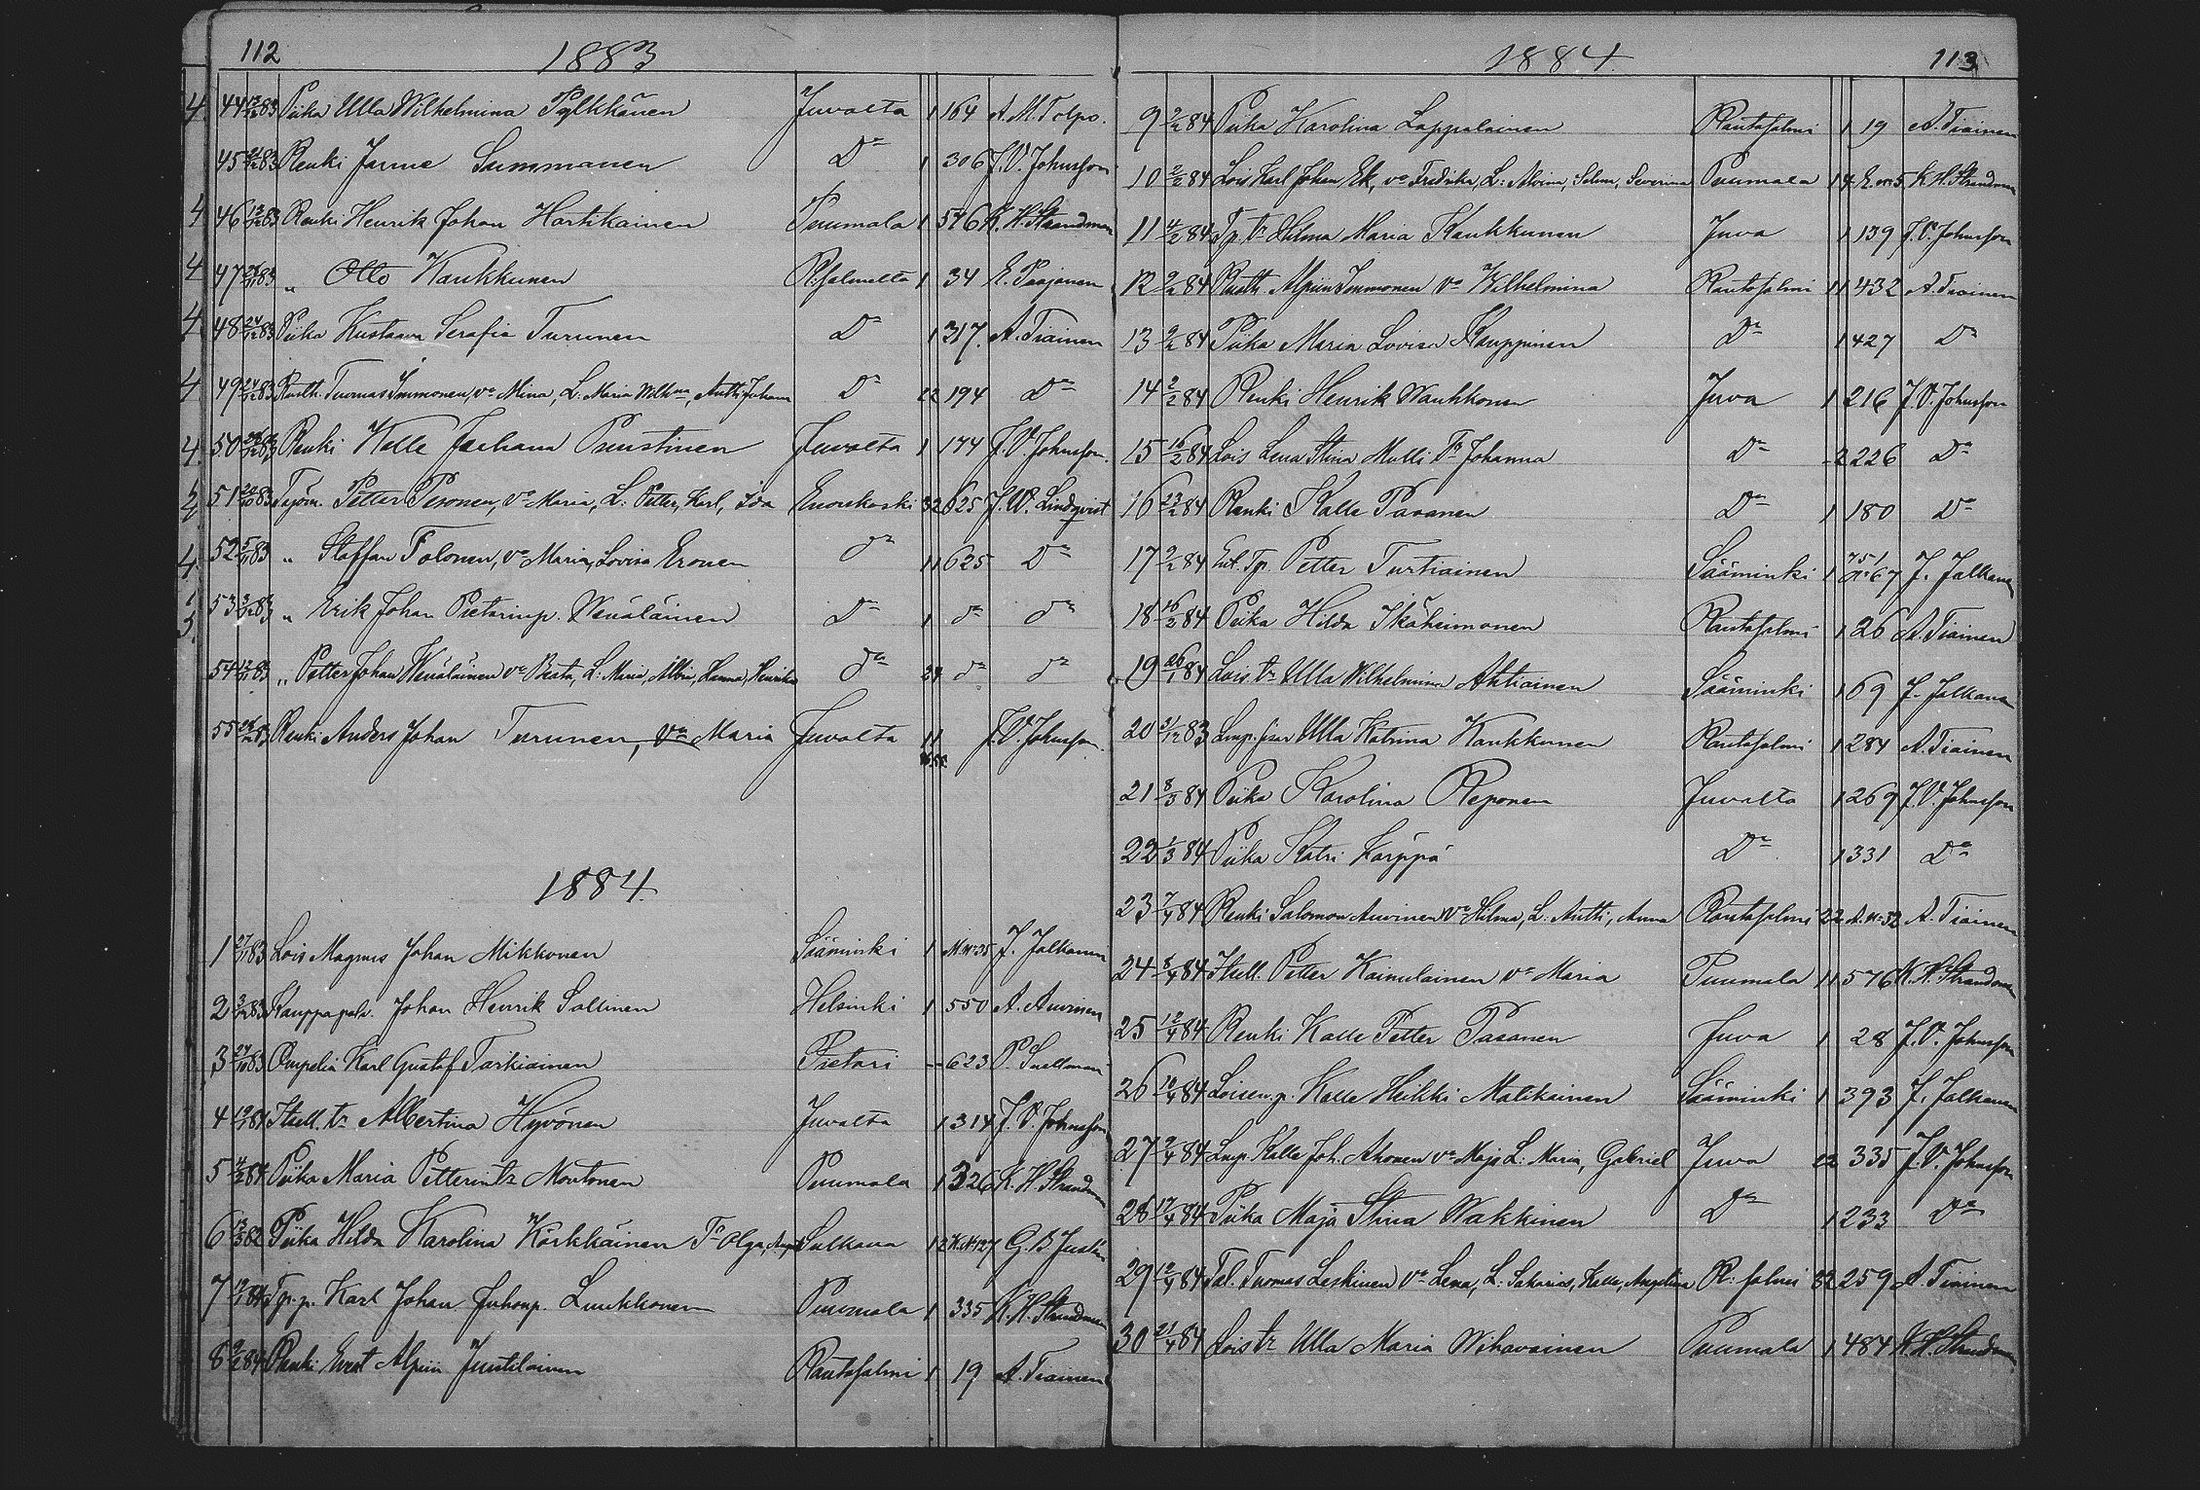 112 1883
44 83 Piika Ulla Wilhelmina Pylkkänen Juvalta 1 164 A. M. Tolpo.
45 83 Renki Janne Summanen Do 1 306 J. V. Johnsson
46 83 Renki Henrik Johan Hartikainen Puumala 1 546 K. H. Strandman
47 83 " Otto Kaukkunen R:salmelta 1 34 E. Paajanen
48 24/12 83 Piika Kustaava Serafia Turunen Do 1 317. A. Tiainen
49 24/12 83 Rusth. Tuomas Immonen, va Mina, L. Maria Wilhna, Antti Juhana Do 22 194 Do
50 83 Renki Kalle Juhana Puustinen Juvalta 1 174 J. V. Johnsson.
51 83 Työm. Petter Pesonen, va Maria, L: Petter, Karl, Ida Enonkoski 32 625 J. W. Lindqvist
52 83 " Staffan Tolonen, va Maria, Lovisa Eronen Do 11 625 Do
53 83 " Erik Johan Pietarinp. Wenäläinen Do 1 do do
54 83 " Petter Johan Wenäläinen va Beata, L: Maria, Albin, Hanna, Henrika do 24 do do
55 83 Renki Anders Johan Turunen, va Maria Juvalta 11 J. V. Johnsson.
1884.
1 83 Lois Magnus Johan Mikkonen Sääminki 1 M. no 35 J. Jalkanen
2 83 Kauppapalv. Johan Henrik Sallinen Helsinki 1 550 A. Auvinen
3 83 Ompelia Karl Gustaf Tarkiainen Pietari -- 623
4 84 Itsell. tr Albertina Hyvönen Juvalta 1 314 J. V. Johnsson
5 84 Piika Maria Petterintr Montonen Puumala 1 326 K. H. Strandman
6 Piika Hilda Karolina Kärkkäinen Tr Olga, Sulkava 12 K. No 127 G. B.
7 84 Tp. p. Karl Johan Juhonp. Luukkonen Puumala 1 335 K. H. Strandman
8 84 Renki Evert Alpin Juutilainen Rantasalmi 1 19 A. Tiainen
1884. 113
9 2/2 84 Piika Karolina Lappalainen Rantasalmi 1 19 A. Tiainen
10 2/2 84 Lois Karl Johan Ek, va Fredrika, L: Alvina, Selma, Severina Puumala 14 E. no 5 K. H. Strandman
11 4/2 84 Tp. tr Hilma Maria Kaukkunen Juva 1 139 J. V. Johnsson
12 84 Rusth. Alpin Immonen va Wilhelmina Rantasalmi 11 432 A. Tiainen
13 84 Piika Maria Lovisa Kauppinen Do 1 427 Do
14 2/2 84 Renki Henrik Waukkonen Juva 1 216 J. V. Johnsson
15 16/2 84 Lois Lena Stina Mulli Tr Johanna Do -2 226 Do
16 23/2 84 Renki Kalle Pasanen Do 1 180 Do
17 84 Ent. Tp. Petter Turtiainen Sääminki 1 J. Jalkanen
18 16/2 84 Piika Hilda Ikäheimonen Rantasalmi 1 26 A. Tiainen
19 26/1 84 Lois tr Ulla Wilhelmina Ahtiainen Sääminki 1 69 J. Jalkanen
20 31/12 83 Lmp. sisar Ulla Katrina Kaukkunen Rantasalmi 1 284 A. Tiainen
21 8/3 84 Piika Karolina Reponen Juvalta 1 269 J. V. Johnsson
22 1/3 84 Piika Katri Karppä Do 1 331 Do
23 7/4 84 Renki Salomon Auvinen va Hilma, L: Antti, Anna Rantasalmi 22 A. no 32 A. Tiainen
24 8/4 84 Itsell. Petter Kainulainen va Maria Puumala 11 576 K. H. Strandman
25 12/4 84 Renki Kalle Petter Pasanen Juva 1 28 J. V. Johnsson
26 10/4 84 Loisen p. Kalle Heikki Malikainen Sääminki 1 393 J. Jalkanen
27 84 Lmp. Kalle Joh. Ahonen va Maja L: Maria, Gabriel Juva 22 335 J. V. Johnsson
28 17/4 84 Piika Maja Stina Wakkinen Do 1 233 Do
29 84 Tal. Tuomas Leskinen va Lena, L: Sakarias, Kalle, Angelina R: salmi 32 259 A. Tiainen
30 21/4 84 Lois tr Ulla Maria Wihavainen Puumala 1 484 K. H. Strandman